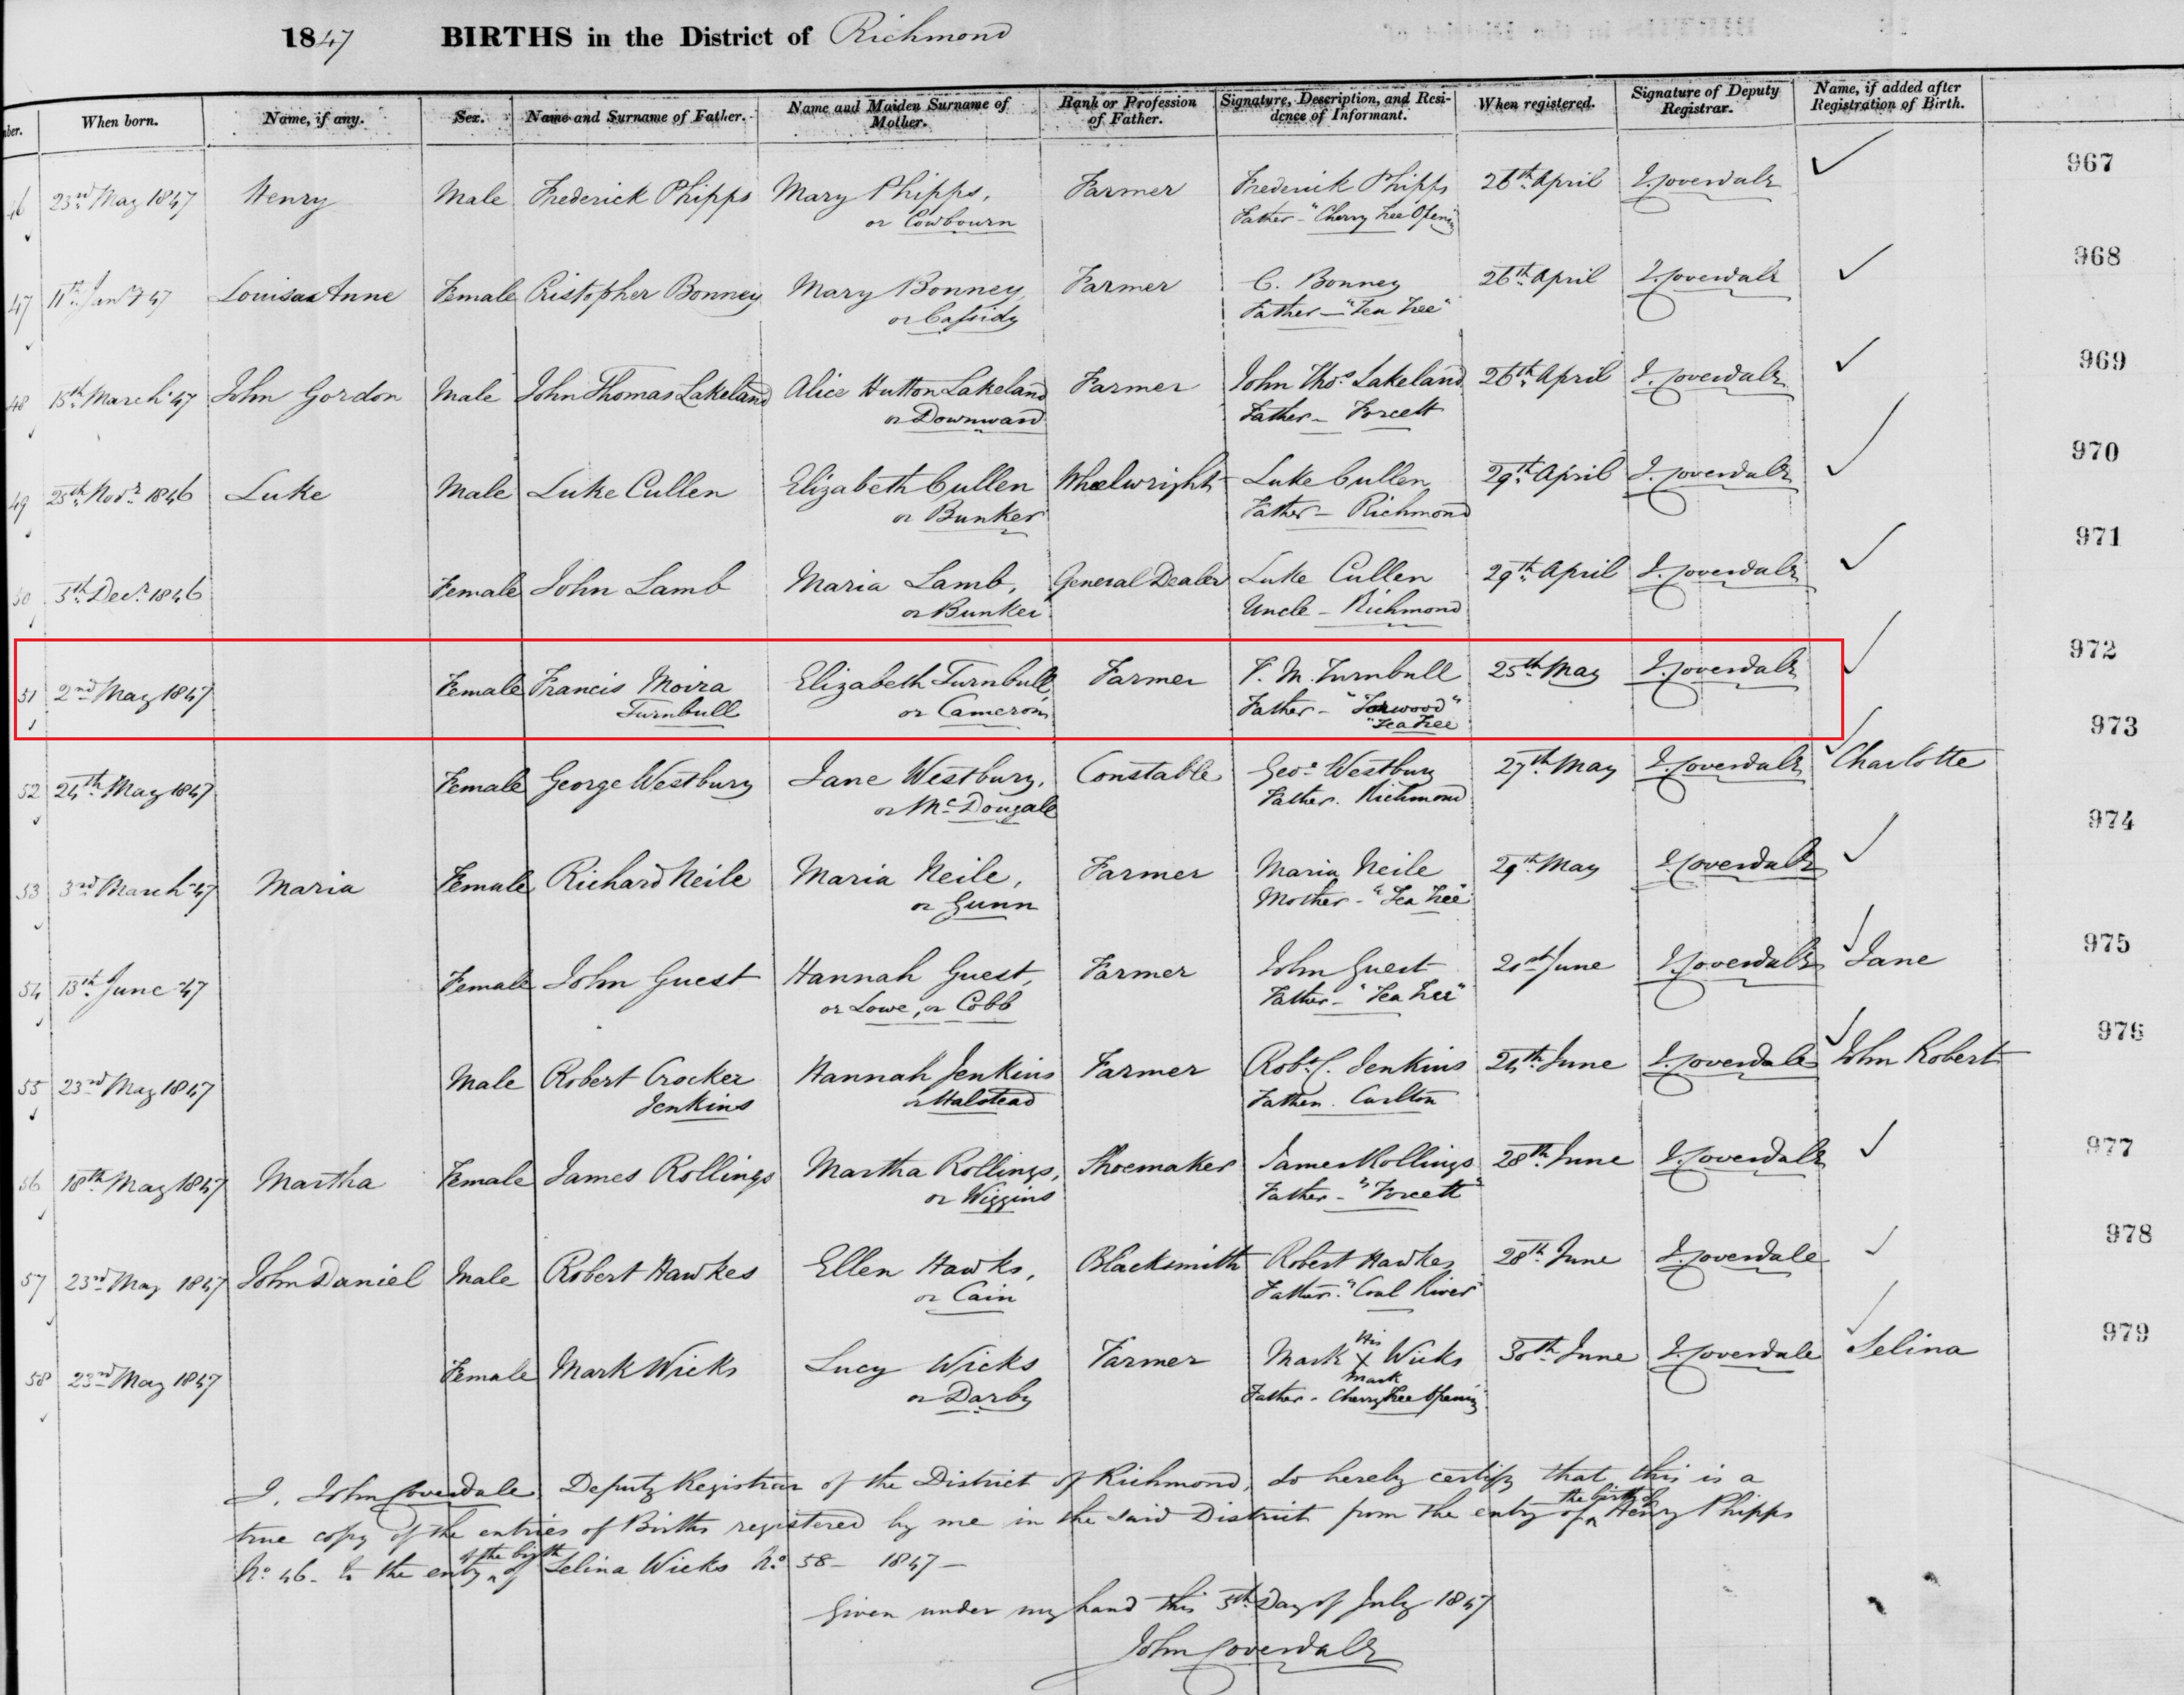 1847 BIRTHS in the District of Richmond
mber. When born. Name, if any. Sex. Name and Surname of Father. Name and Maiden Surname of Mother. Rank or Profession of Father. Signature, Description, and Residence of Informant. When registered. Signature of Deputy Registrar. Name, if added after Registration of Birth.
46 23rd May 1847 Henry Male Frederick Phipps Mary Phipps, Farmer Frederick Phipps 26th April J. Coverdale 967
or Cowbourn Father - "Cherry Tree Opening"
47 11th Jany 47 Louisa Anne Female Cristopher Bonney Mary Bonney Farmer C. Bonney 26th April J. Coverdale 968
or Cassidy Father - "Tea Tree"
48 15th March '47 John Gordon Male John Thomas Lakeland Alice Hutton Lakeland Farmer John Thos. Lakeland 26th April J. Coverdale 969
or Downward Father - Forcett
49 25th Novr. 1846 Luke Male Luke Cullen Elizabeth Cullen Wheelwright Luke Cullen 29th April J. Coverdale 970
or Bunker Father - Richmond
50 5th Decr. 1846 Female John Lamb Maria Lamb, General Dealer Luke Cullen 29th April J. Coverdale 971
or Bunker Uncle - Richmond
51 2nd May 1847 Female Francis Moira Elizabeth Turnbull Farmer F. M. Turnbull 25th May J. Coverdale 972
Turnbull or Cameron Father - "Torwood"
"Tea Tree"
52 24th May 1847 Female George Westbury Jane Westbury, Constable Geo. Westbury 27th May J. Coverdale Charlotte 973
or McDougale Father. Richmond
53 3rd March '47 Maria Female Richard Neile Maria Neile, Farmer Maria Neile 29th May J. Coverdale 974
or Gunn Mother - "Tea Tree"
54 13th June '47 Female John Guest Hannah Guest, Farmer John Guest 21st June J. Coverdale Jane 975
or Lowe, or Cobb Father - "Tea Tree"
55 23rd May 1847 Male Robert Crocker Hannah Jenkins Farmer Robt. C. Jenkins 24th June J. Coverdale John Robert 976
Jenkins or Halstead Father. Carlton
56 18th May 1847 Martha Female James Rollings Martha Rollings, Shoemaker James Rollings 28th June J. Coverdale 977
or Wiggins Father - "Forcett"
57 23rd May 1847 John Daniel Male Robert Hawkes Ellen Hawks, Blacksmith Robert Hawkes 28th June J. Coverdale 978
or Cain Father - "Coal River"
58 23rd May 1847 Female Mark Wicks Lucy Wicks Farmer Mark his X mark Wicks 30th June J. Coverdale Selina 979
or Darby Father - Cherry Tree Opening
I, John Coverdale, Deputy Registrar of the District of Richmond, do hereby certify that this is a
true copy of the entries of Births registered by me in the said District from the entry of the birth of Henry Phipps
No. 46 - to the entry of the birth of Selina Wicks No. 58 - 1847 -
Given under my hand this 5th Day of July 1847
John Coverdale